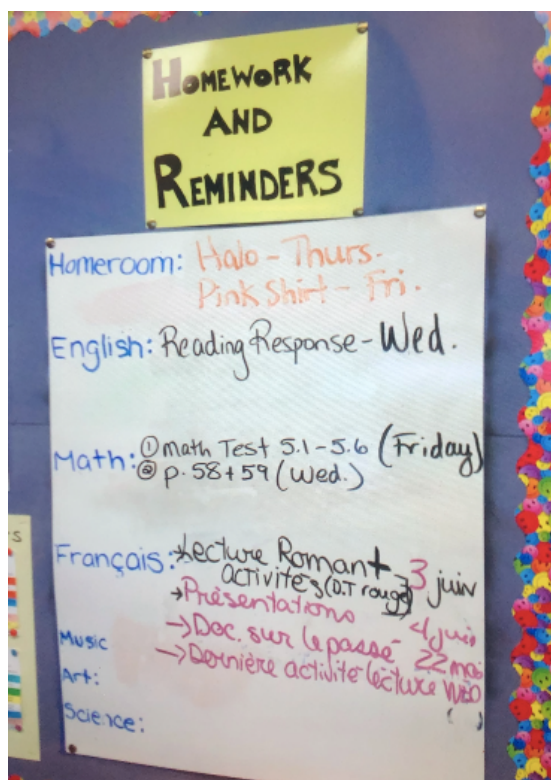 HOMEWORK
AND
REMINDERS
Homeroom: Halo - Thurs.
Pink Shirt - Fri.
English: Reading Response - Wed.
Math: ① math Test 5.1-5.6 (Friday)
② p.58+59 (Wed.)
Français: → Lecture Roman +
activités (D.T rouge) → 3 juin
→ Présentations 4 juin
→ Doc. sur le passé - 22 mai
→ Dernière activité lecture WED
Music
Art:
Science: